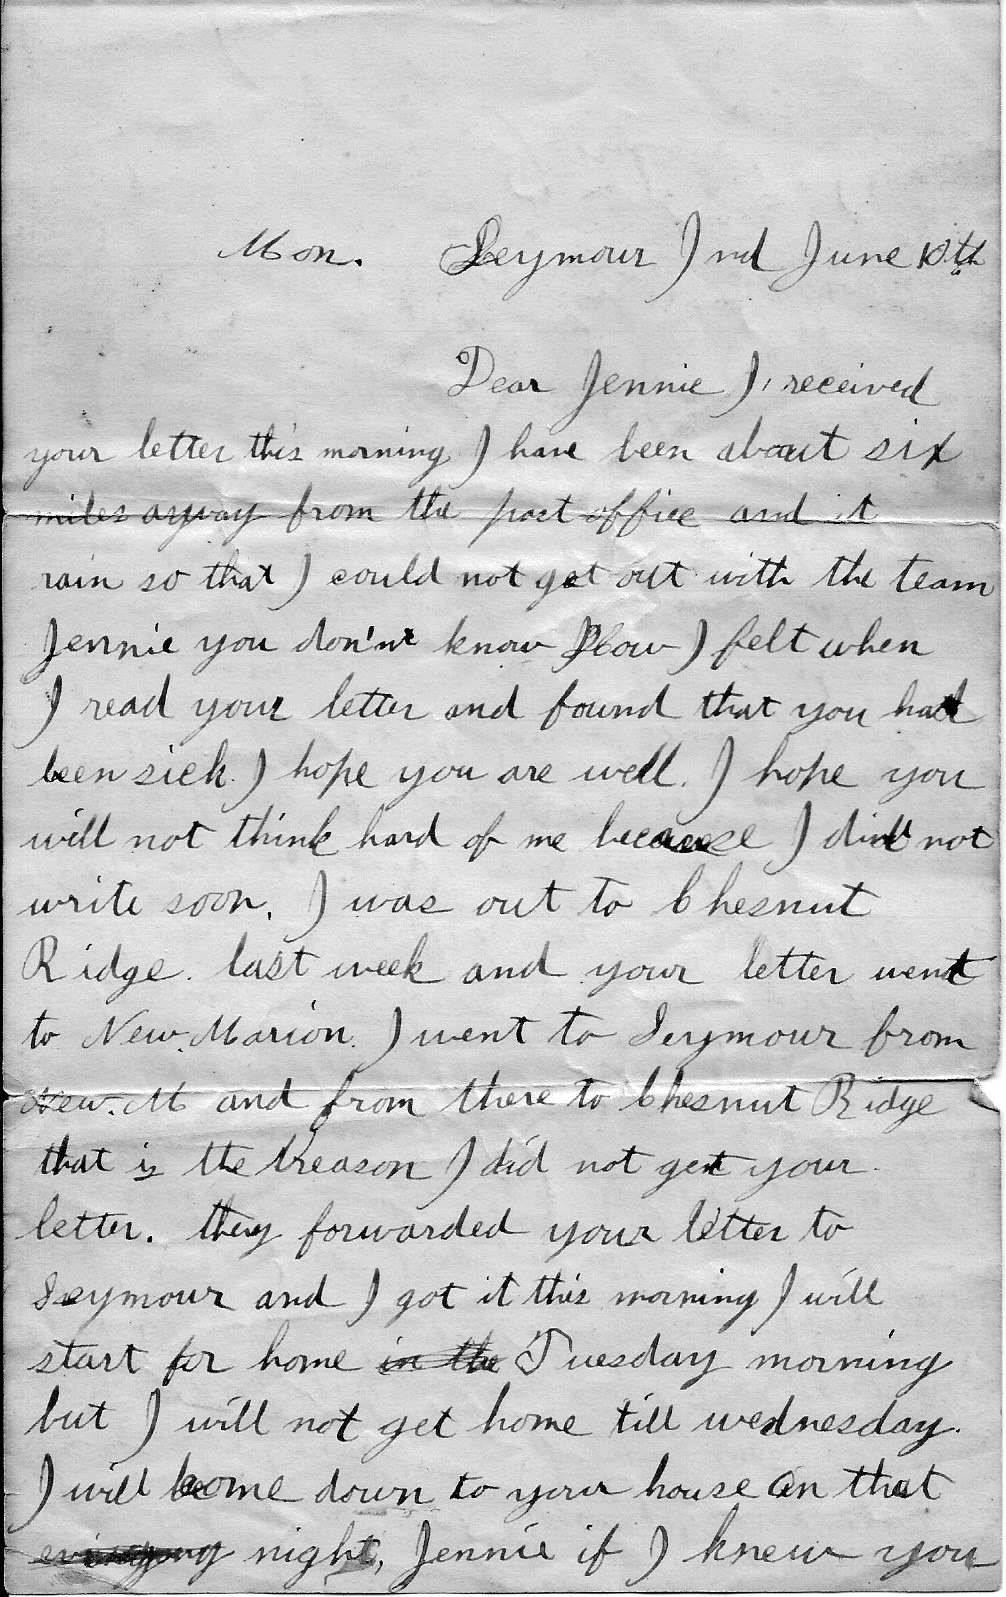 Mon. Seymour Ind June 10th
Dear Jennie I received
your letter this morning I have been about six
miles ayway from the post office and it
rain so that I could not get out with the team
Jennie you don'nt know How I felt when
I read your letter and found that you had
been sick. I hope you are well. I hope you
will not think hard of me because I did not
write soon. I was out to Chesnut
Ridge. last week and your letter went
to New. Marion. I went to Seymour from
New. M and from there to Chesnut Ridge
that is the treason I did not get your
letter. they forwarded your letter to
Seymour and I got it this morning I will
start for home in the Tuesday morning
but I will not get home till wednesday.
I will come down to your house on that
night, Jennie if I knew you